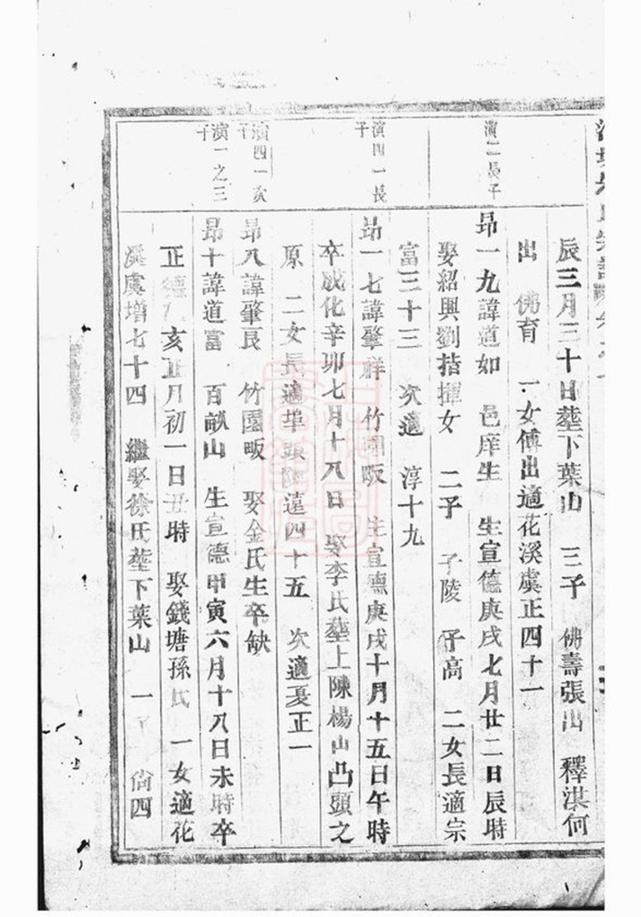 辰三月三十日塟下葉山 三子 佛壽張出 釋淇何
出 佛育 一女傅出適花溪虞正四十一
演二長子
昂一九諱道如 邑庠生 生宣德庚戌七月廿二日辰時
娶紹興劉揮女 二子 子陵 子高 二女長適宗
富三十三 次適 淳十九
演四一長子
昂一七諱肇祥 竹園畈 生宣德庚戌十月十五日午時
卒成化辛卯七月十八日 娶李氏塟上陳楊山凸頭之
原 二女長適埠頭陳遠四十五 次適夏正一
演四一次子
昂八諱肇良 竹園畈 娶金氏生卒缺
演一之三子
昂十諱道富 百畝山 生宣德甲寅六月十八日未時卒
正德 亥正月初一日丑時 娶錢塘孫氏 一女適花
溪虞增七十四 繼娶徐氏塟下葉山 一 尙四